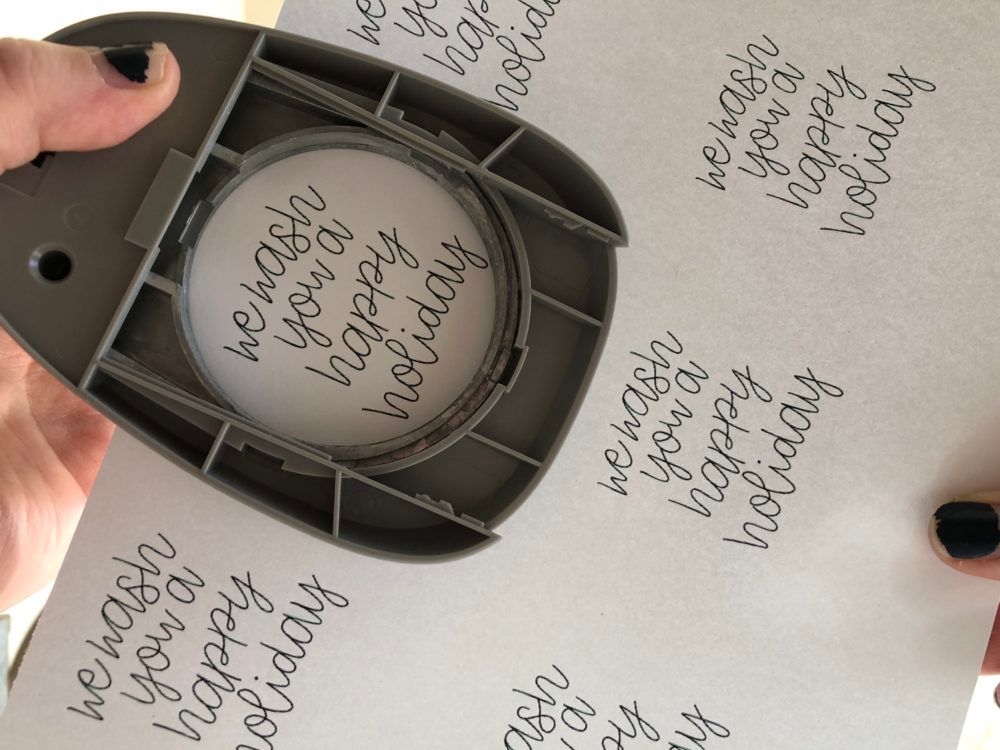 we
yo
hap
holid
we wash
you a
happy
holiday
we wash
you a
happy
holiday
we wash
you a
happy
holiday
we wash
you a
happy
holiday
ash
a
py
ay